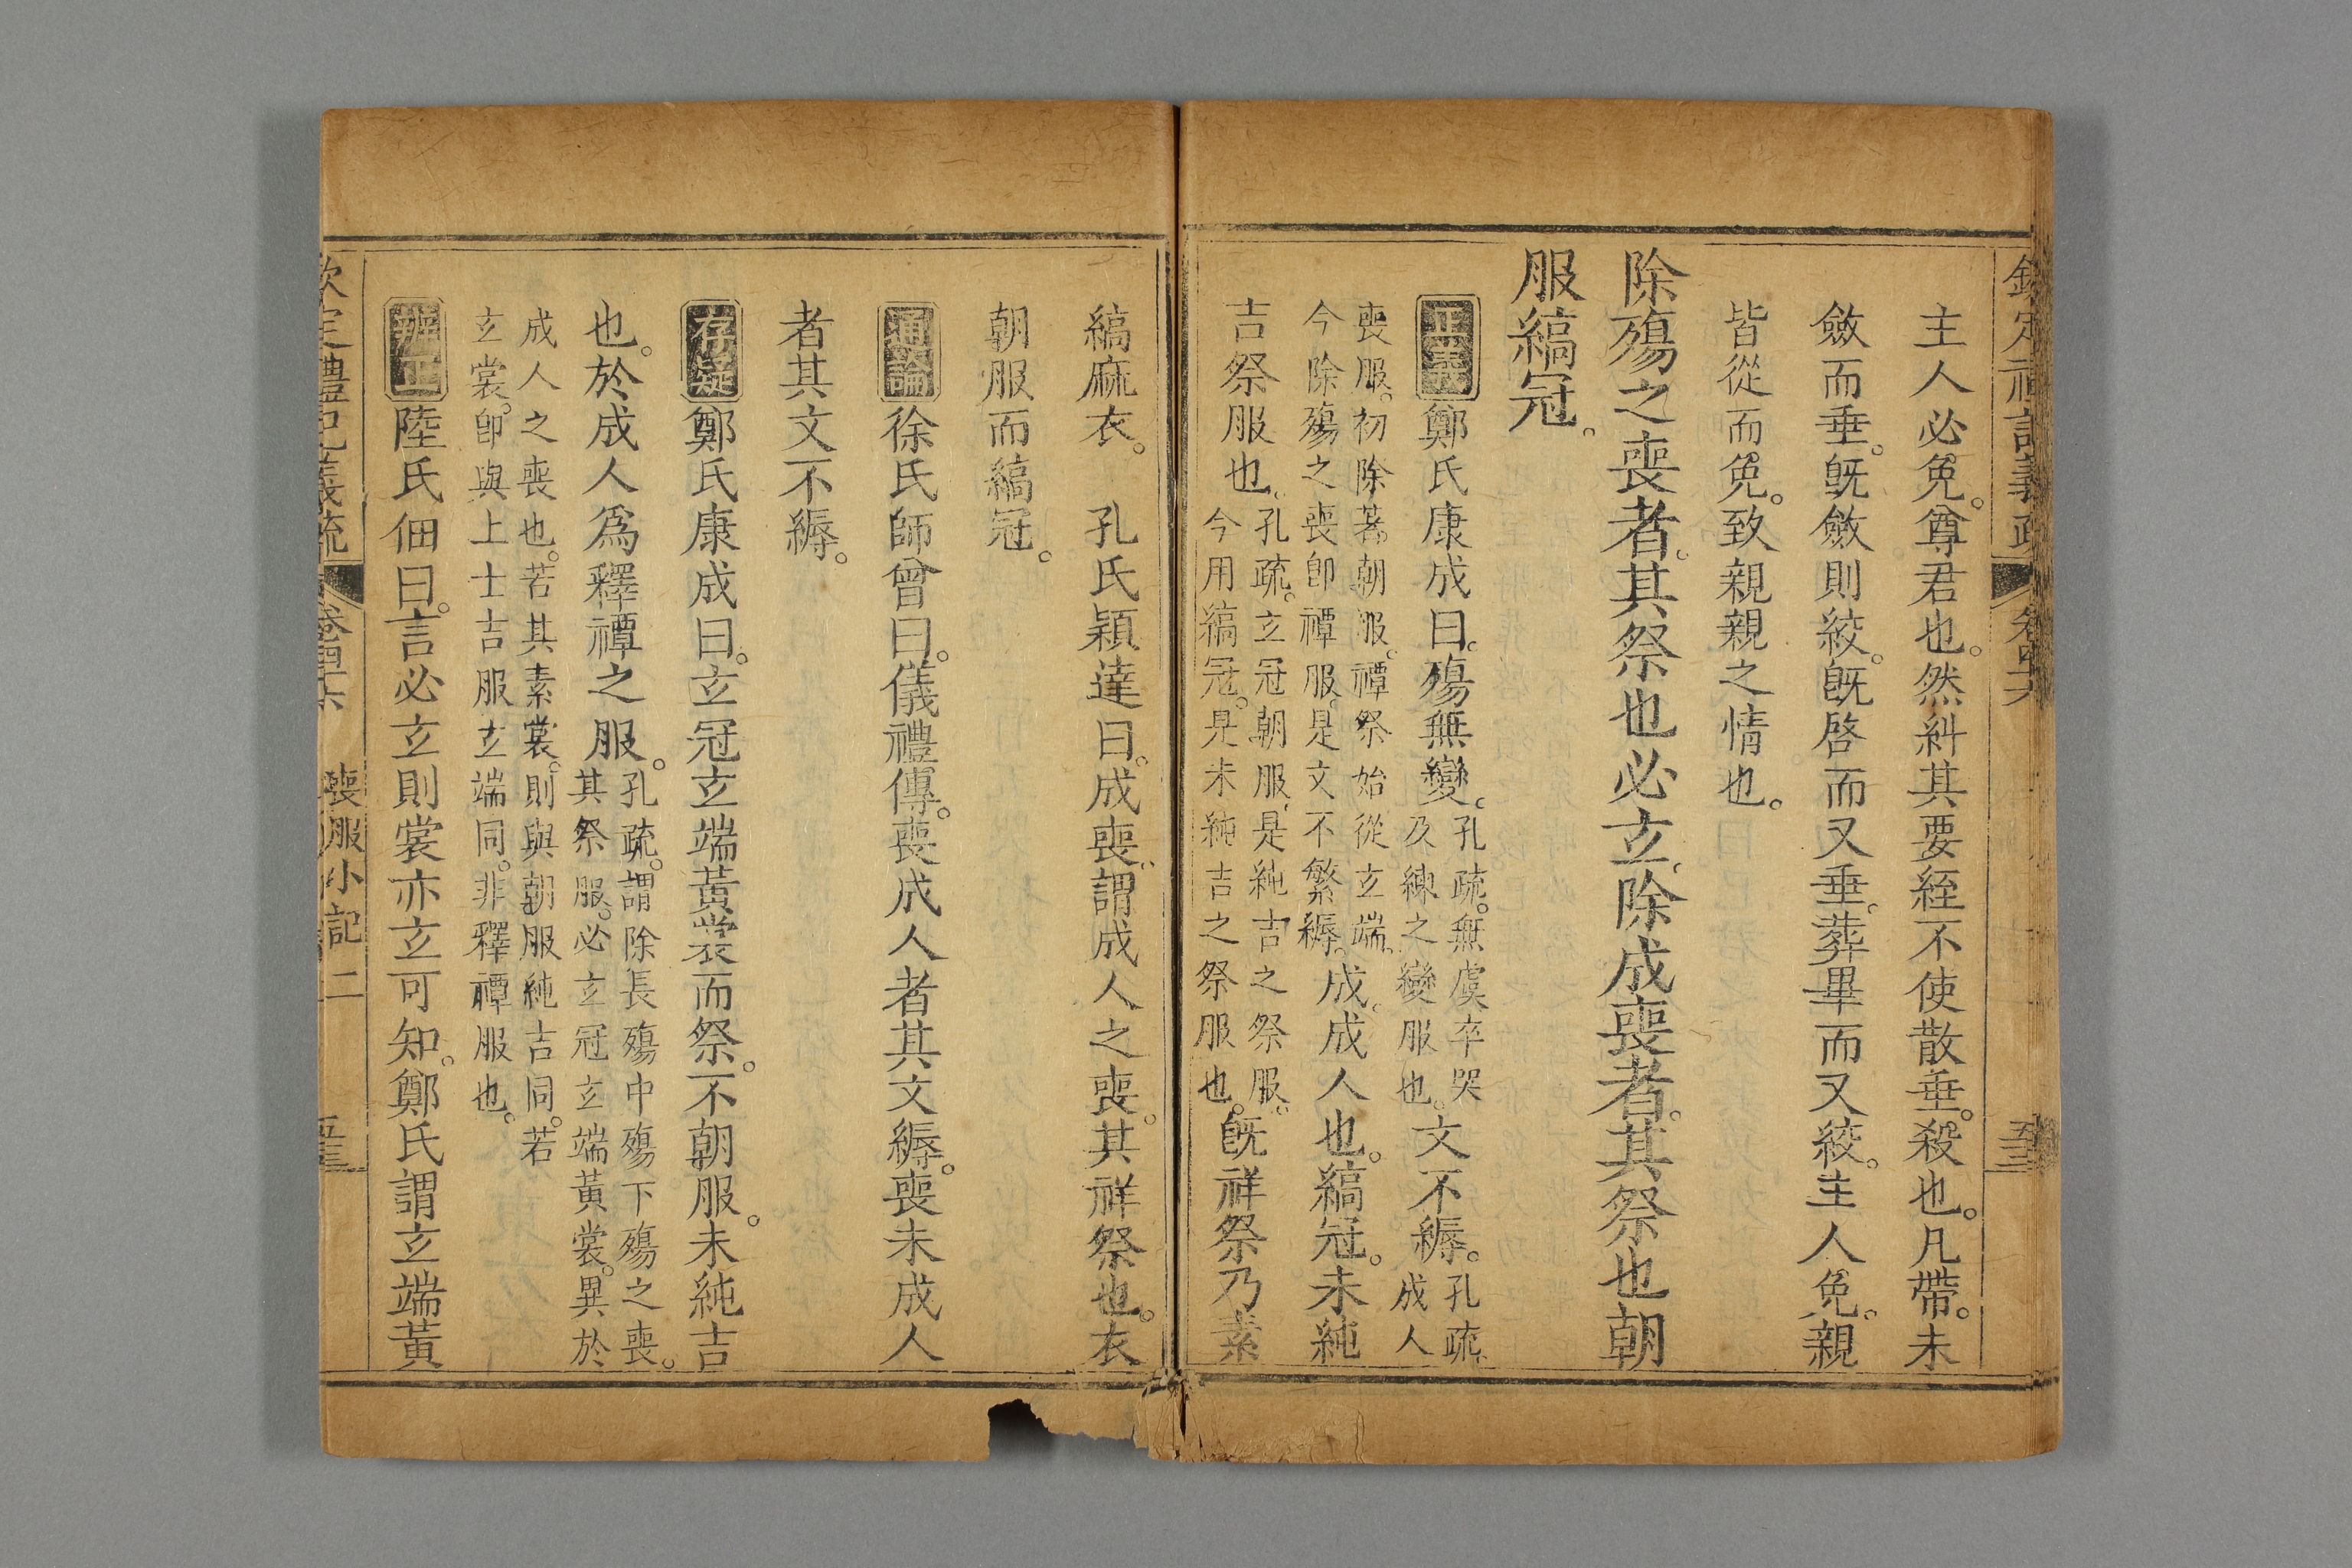 主人必免。尊君也。然糾其要絰不使散垂。殺也。凡帶。未
斂而垂。旣斂則絞。旣啓而又垂。葬畢而又絞。主人免。親
皆從而免。致親親之情也。
除殤之喪者。其祭也必玄。除成喪者。其祭也朝
服縞冠。
正義鄭氏康成曰。殤無變。
孔疏。無虞卒哭
及練之變服也。
文不縟。
孔疏。
成人
喪服。初除著朝服。禫祭始從玄端。
今除殤之喪卽禫服。是文不繁縟。
成。成人也。縞冠。未純
吉祭服也。
孔疏。玄冠朝服。是純吉之祭服。
今用縞冠。是未純吉之祭服也。
旣祥祭乃素
縞麻衣。 孔氏穎達曰。成喪。謂成人之喪。其祥祭也。衣
朝服而縞冠。
通論徐氏師曾曰。儀禮傳。喪成人者其文縟。喪未成人
者其文不縟。
存疑鄭氏康成曰。玄冠玄端黃裳而祭。不朝服。未純吉
也。於成人爲釋禫之服。
孔疏。謂除長殤中殤下殤之喪。
其祭服。必玄冠玄端黃裳。異於
成人之喪也。若其素裳。則與朝服純吉同。若
玄裳。卽與上士吉服玄端同。非釋禫服也。
辨正陸氏佃曰。言必玄則裳亦玄可知。鄭氏謂玄端黃
欽定禮記義疏 卷四十六 喪服小記二 五三